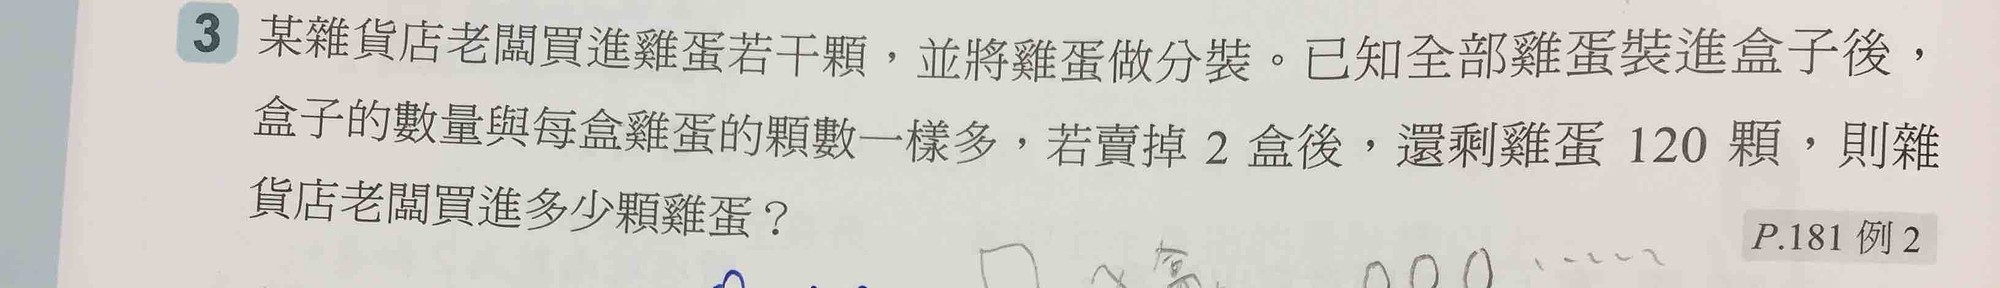 3 某雜貨店老闆買進雞蛋若干顆，並將雞蛋做分裝。已知全部雞蛋裝進盒子後，
盒子的數量與每盒雞蛋的顆數一樣多，若賣掉 2 盒後，還剩雞蛋 120 顆，則雜
貨店老闆買進多少顆雞蛋？
P.181 例 2